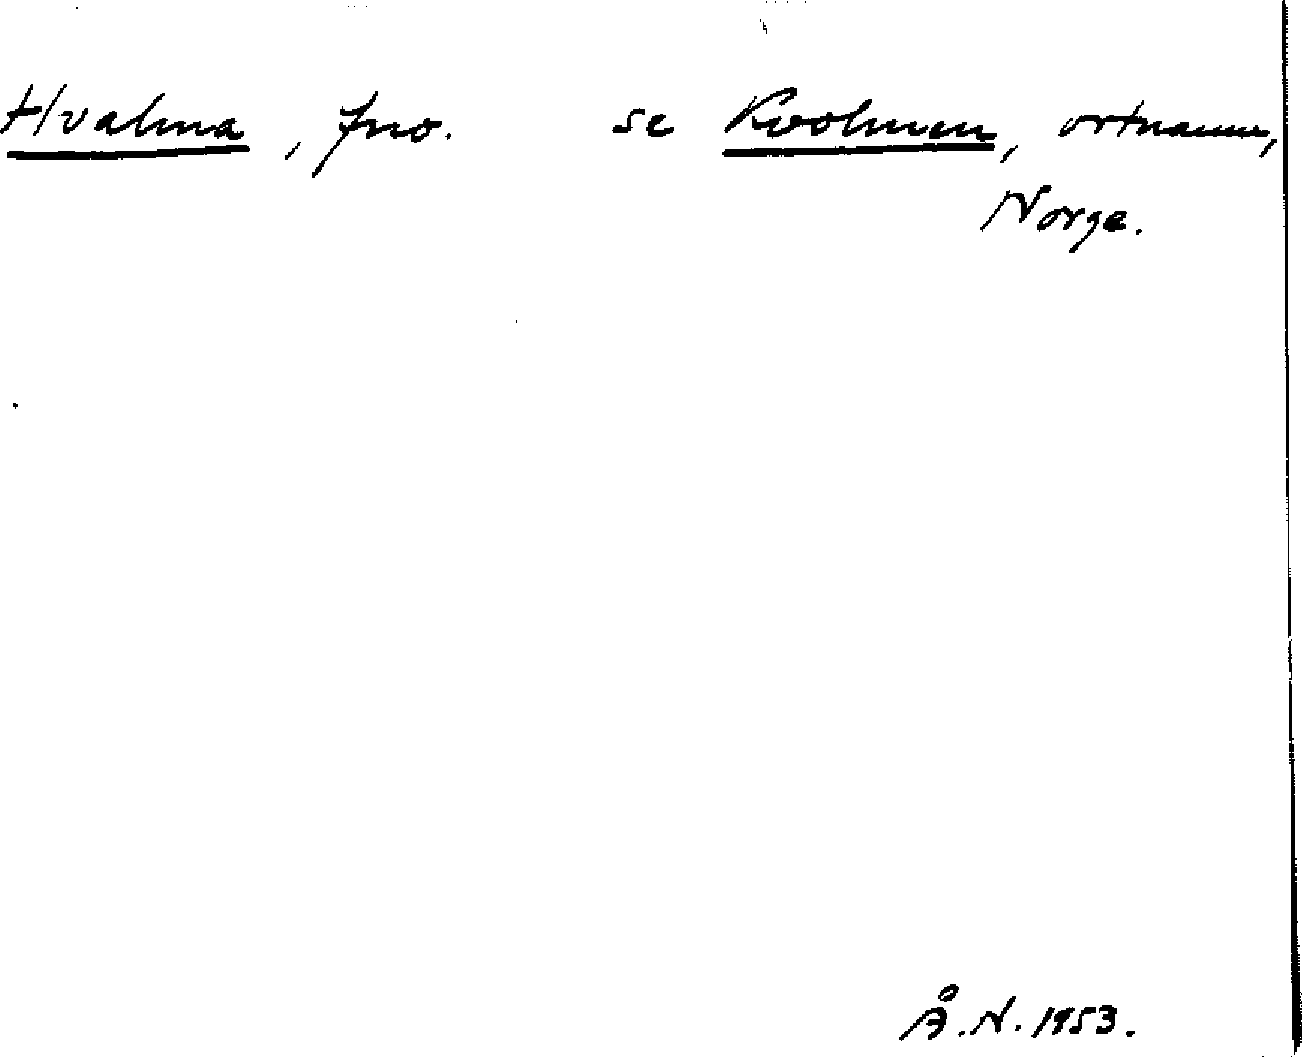 Hvalma, fno. se Kvolmen, ortnamn,
Norge.
Å.N. 1953.